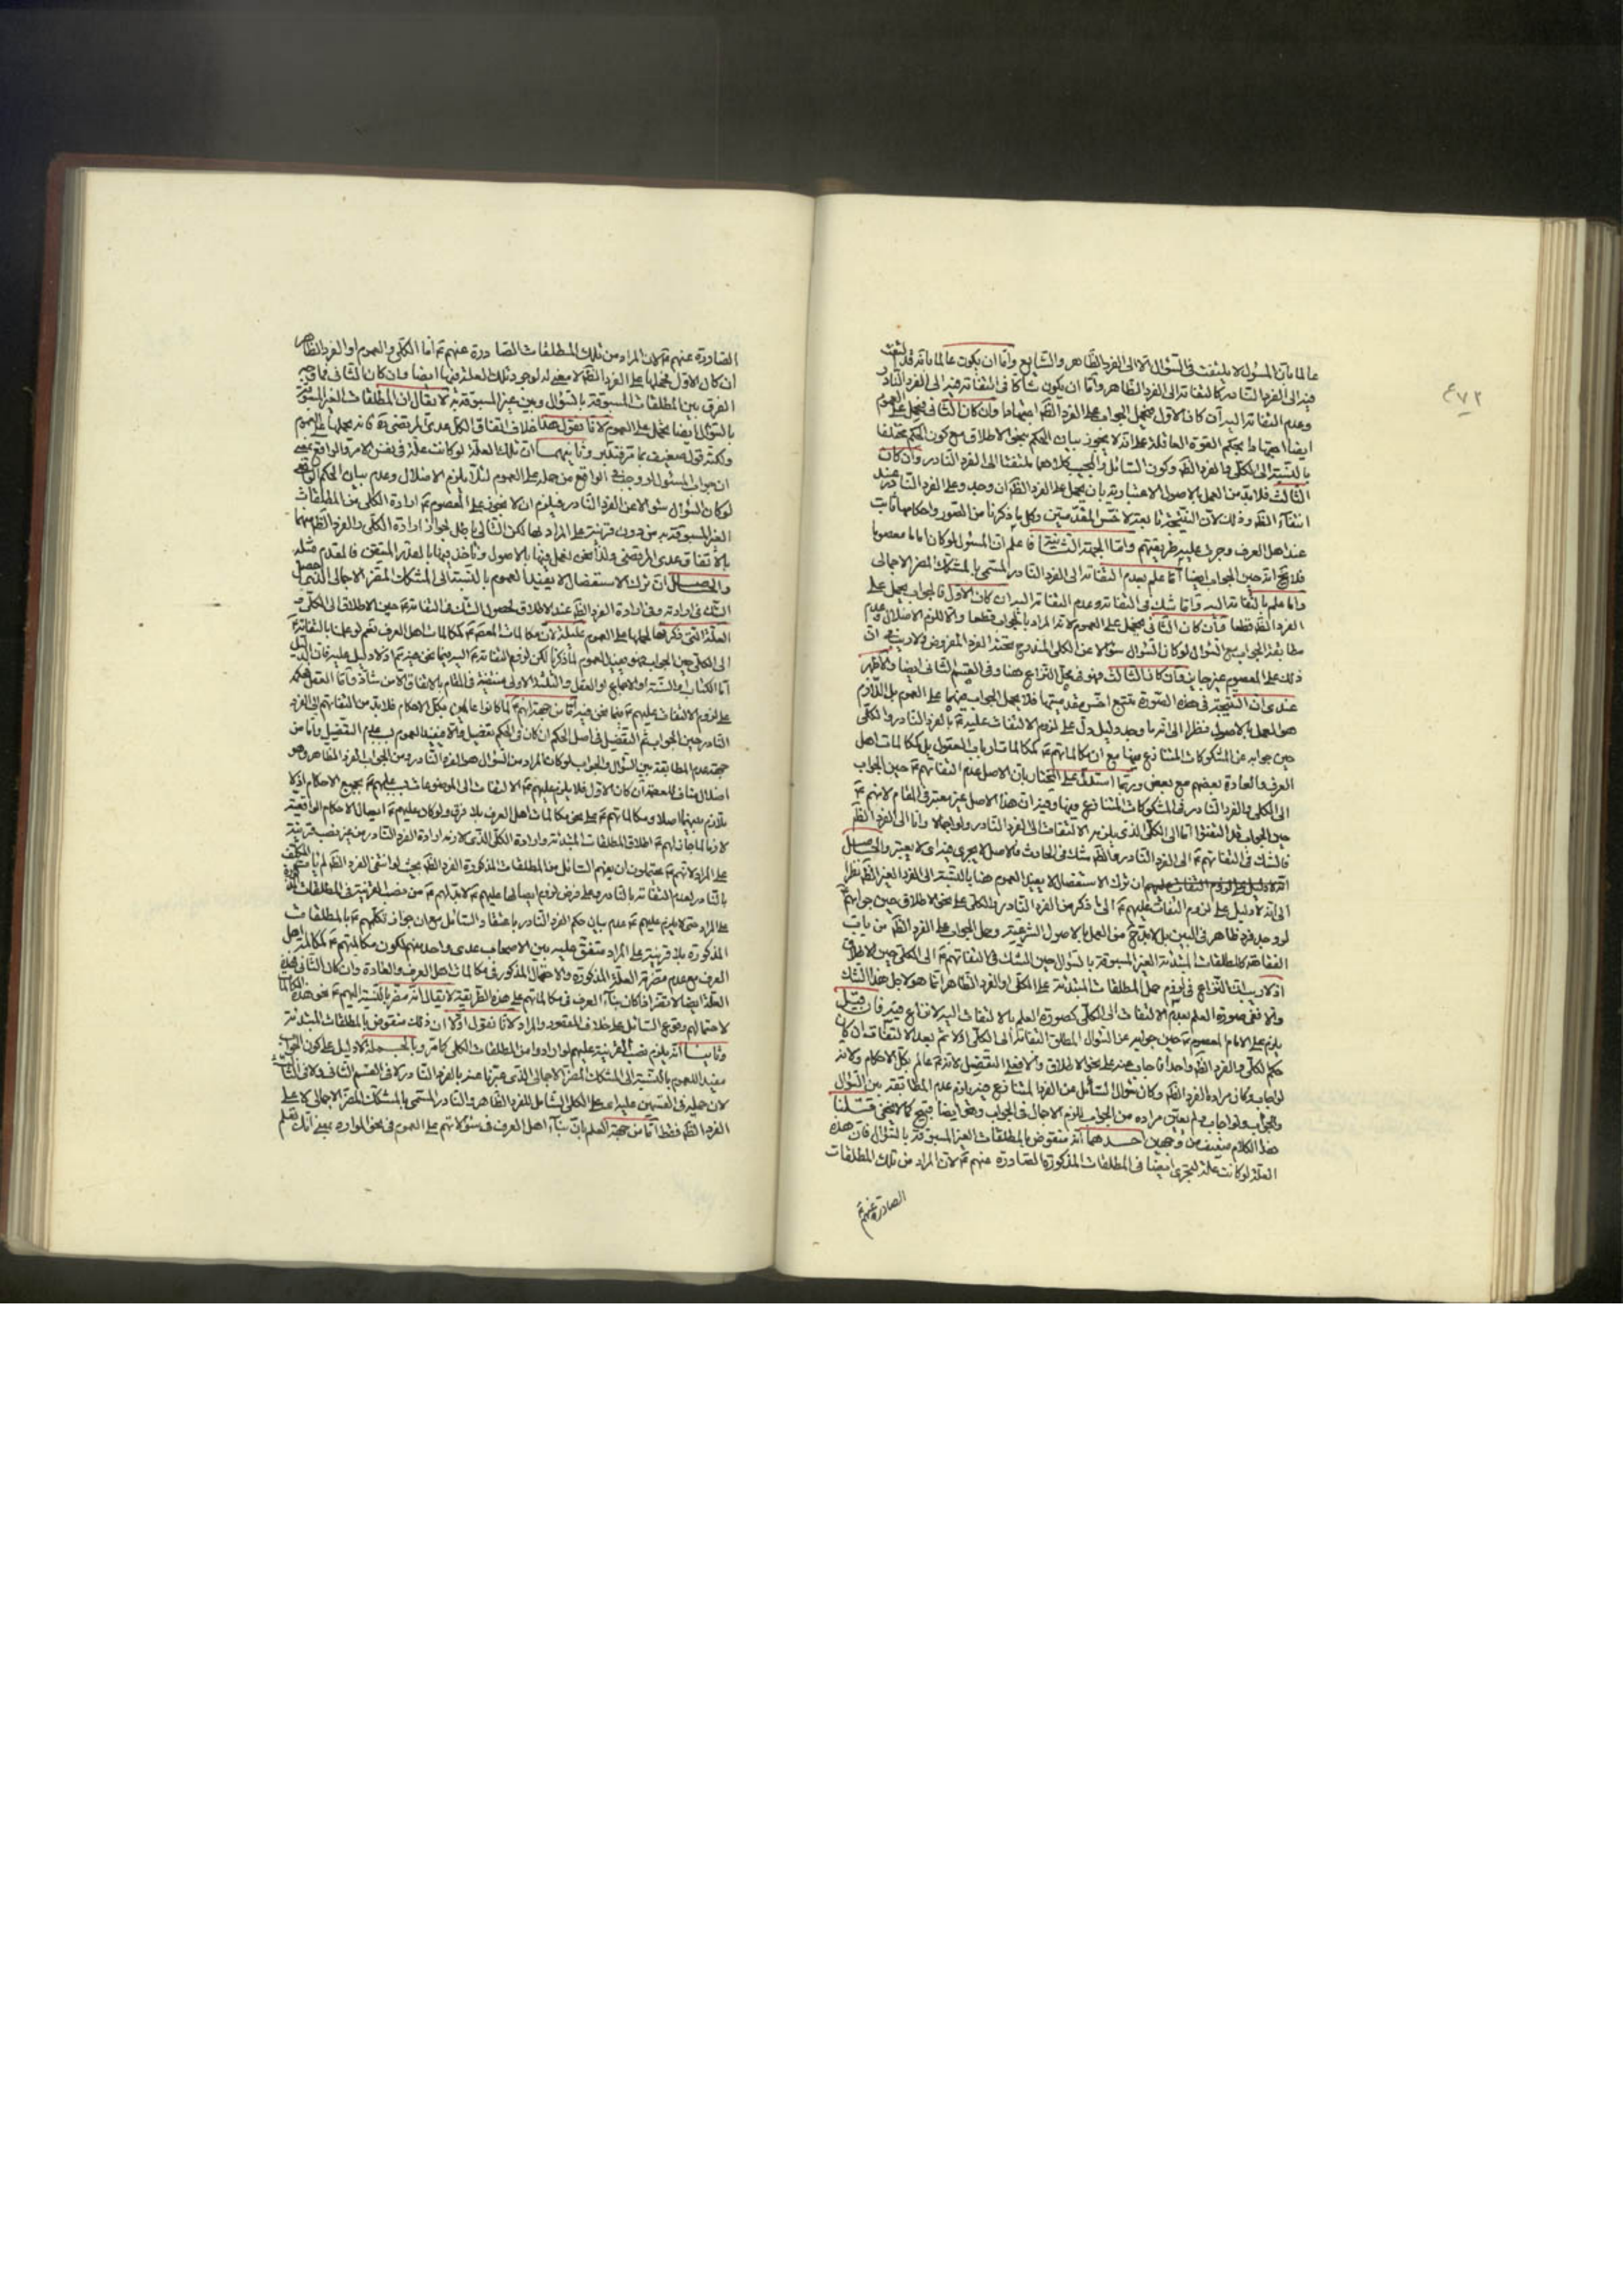 ٤٧٢
عالما بان المسئول لا يلتفت فى السؤال الا الى الفرد الظاهر والشايع واما ان يكون عالما بانه قد يلتفت
فيه الى الفرد النادر كالتفاته الى الفرد الظاهر واما ان يكون شاكا فى التفاته فيه الى الفرد النادر
وعدم التفاته اليه فان كان الاول فيحمل الجواب على الفرد الظه وان كان الثانى فيحمل على العموم
ايضا بحكم القوة العاقلة على انه لا يجوز بيان الحكم بنحو الاطلاق مع كون الحكم مختلفا
بالنسبة الى الكلى والفرد الظه وكون السائل والمجيب كلاهما ملتفتا الى الفرد النادر وان كان
الثالث فلا بد من العمل بالاصول الاعتبارية بان يحمل على الفرد الظه ان وجد وعلى الفرد النادر عند
انتفاء الظه وذلك لان النتيجة تابعة لاخس المقدمتين وكل ما ذكرنا من الصور واحكامها ثابت
عند اهل العرف وجرت عليه طريقتهم واما الجهة الثانية فاعلم ان المسئول لو كان اماما معصوما
فلا يخ انه حين الجواب ايضا اما علم بعدم التفاته الى الفرد النادر المسمى بالمشكك المضر الاجمالى
واما علم بالتفاته اليه واما شك فى التفاته وعدم التفاته اليه ان كان الاول فالجواب يحمل على
الفرد الظه قطعا وان كان الثانى فيحمل على العموم لانه المراد بالجواب قطعا والا للزم الاضلال وعدم
مطابقة الجواب مع السؤال لو كان السؤال سؤالا عن الكلى المندرج تحته الفرد المفروض ولا ريب فى ان
ذلك على المعصوم غير جايز وان كان الثالث فهو فى محل النزاع هنا وفى القسم الثانى ايضا والاظهر
عندى ان النتيجة فى هذه الصورة تتبع اخس مقدمتيها فلا يحمل الجواب فيها على العموم بل اللازم
هو العمل بالاصول نظرا الى انه ما وجد دليل دل على لزوم الالتفات عليه بالفرد النادر والكلى
حين جوابه عن المشكوكات المتنازع فيها مع ان مكالماتهم كمكالمات ارباب العقول بل كمكالمات اهل
العرف والعادة بعضهم مع بعض وربما استدل على المختار بان الاصل عدم التفاتهم حين الجواب
الى الكلى والفرد النادر فى المشكوكات المتنازع فيها وفيه ان هذا الاصل غير معتبر فى المقام لانهم
حين الجواب قد التفتوا اما الى الكلى الذى يلزمه الالتفات الى الفرد النادر ولو اجمالا واما الى الفرد الظه
فالشك فى التفاتهم الى الفرد النادر والظه شك فى الحادث والاصل لا يجرى فيه اى لا يعتبر والحاصل
ان ترك الاستفصال لا يفيد العموم هنا بالنسبة الى الفرد الغير الظه نظرا
الى انه لا دليل على لزوم التفات عليهم الى ما ذكر من الفرد النادر والكلى على نحو الاطلاق حين جوابهم
لو وجد فرد ظاهر فى البين بل لا بد ح من العمل بالاصول الشرعية وحمل الجواب على الفرد الظه من باب
الفقاهة كالمطلقات المبتدئة الغير المسبوقة بالسؤال حين الشك فى التفاتهم الى الكلى حين الاطلاق
اذ لا ريب ان النزاع فى لزوم حمل المطلقات المبتدئة على الكلى او الفرد الظاهر انما هو لاجل هذا الشك
والا ففى صورة العلم بعدم الالتفات الى الكلى كصورة العلم بالالتفات اليه لا نزاع فيه فان قيل
يلزم على الامام المعصوم حين جوابه عن السؤال المطلق التفاته الى الكلى اولا ثم بعد الالتفات ان كان
حكم الكلى والفرد الظه واحدا فاجاب عنه على نحو الاطلاق والا فعلى التفصيل لانه عالم بكل الاحكام ولانه
لو اجاب وكان مراده الفرد الظه وكان سؤال السائل عن الفرد المتنازع فيه يلزم عدم المطابقة بين السؤال
والجواب ولو اجاب ولم يعين مراده من الجواب يلزم الاجمال فى الجواب وهو ايضا قبيح كما لا يخفى قلنا
هذا الكلام ضعيف من وجهين احدهما انه منقوض بالمطلقات الغير المسبوقة بالسؤال فان هذه
العلة لو كانت علة لتجرى ايضا فى المطلقات المذكورة الصادرة عنهم لان المراد من تلك المطلقات
الصادرة عنهم
الصادرة عنهم لان المراد من تلك المطلقات الصادرة عنهم اما الكلى والعموم او الفرد الظاهر
ان كان الاول فحملها على الفرد الظه لا معنى له لوجود تلك العلة فيها ايضا وان كان الثانى فما وجه
الفرق بين المطلقات المسبوقة بالسؤال وبين غير المسبوقة به لا يقال ان المطلقات الغير المسبوقة
بالسؤال ايضا يحمل على العموم لانا نقول هذا خلاف اتفاق الكل عدى المرتضى فانه يحملها على العموم
ولكنه قوله ضعيف بما مر وثانيهما ان تلك العلة لو كانت علة فى نفس الامر والواقع بمعنى
ان جواب المسئول لو وجب فى الواقع من حمله على العموم لئلا يلزم الاضلال وعدم بيان الحكم الواقعى
لو كان السؤال سؤالا عن الفرد النادر فيلزم ان لا يجوز على المعصوم ارادة الكلى من المطلقات
الغير المسبوقة به من دون قرينة على المراد لها لكن التالى باطل لجواز ارادة الكلى والفرد الظه منها
بالاتفاق عدى المرتضى ولذا نحن نعمل فيها بالاصول وناخذ فيها بالقدر المتيقن فالمقدم مثله
والحاصل ان ترك الاستفصال لا يفيد العموم بالنسبة الى المشكك المضر الاجمالى الذى حصل
الشك فى ارادته وفى ارادة الفرد الظه عند الاطلاق لحصول الشك فى التفاته حين الاطلاق الى الكلى و
العلة التى ذكرتها لحملها على العموم عليلة لان مكالمات المعصوم كمكالمات اهل العرف نعم لو علمنا بالتفاته
الى الكلى حين الجواب فهو يفيد العموم لما ذكرنا لكن لزوم التفاته اليه فيما نحن فيه اذ لا دليل عليه فان الدليل
اما الكتاب او السنة او الاجماع او العقل والثلثة الاولى منتفية فى المقام بالاتفاق الا من شاذ واما العقل فحكمه
على لزوم الالتفات عليهم فيما نحن فيه اما من جهة انهم لما كانوا عالمين بكل الاحكام فلا بد من التفاتهم الى الفرد
النادر حين الجواب ثم التفصيل فى اصل الحكم ان كان فى الحكم تفصيل والا فيفيد العموم بعدم التفصيل واما من
جهة عدم المطابقة بين السؤال والجواب لو كان المراد من السؤال هو الفرد النادر ومن الجواب الفرد الظاهر وهو
اضلال مناف للعصمة ان كان الاول فلا يلزم عليهم الالتفات الى الموضوعات بسبب علمهم بجميع الاحكام اذ لا
تلازم بينهما اصلا ومكالماتهم على نحو مكالمات اهل العرف بلا فرق ولو كان عليهم ايصال الاحكام الواقعية
لازما لما جاز لهم اطلاق المطلقات المبتدئة وارادة الكلى الذى لازمه ارادة الفرد النادر من غير نصب قرينة
على المراد لانهم يحتملون ان يفهم السائل من المطلقات المذكورة الفرد الظه بحيث لو انتفى الفرد الظه لم يات المكلف
بالنادر لعدم التفاته بالنادر وعلى فرض لزوم ايصالها عليهم لا بد لهم من نصب القرينة فى المطلقات المذكورة
على المراد حتى لا يلزم عليهم عدم بيان حكم الفرد النادر باعتقاد السائل مع ان جواز تكلمهم بالمطلقات
المذكورة بلا قرينة على المراد متفق عليه بين الاصحاب عدى واحد منهم لكون مكالمتهم كمكالمة اهل
العرف مع عدم مضرة العلة المذكورة والاحتمال المذكور فى مكالمات اهل العرف والعادة وان كان الثانى فهذه
العلة ايضا لا تضر اذا كان بناء العرف فى مكالماتهم على هذه الطريقة لا يقال انه مضر بالنسبة اليهم نحو هذه المكالمات
لاحتمالهم وقوع السائل على خلاف المقصود والمراد لانا نقول اولا ان ذلك منقوض بالمطلقات المبتدئة
وثانيا انه يلزم نصب القرينة عليهم لو ارادوا من المطلقات الكلى كما مر وبالجملة لا دليل على كون الجواب
مفيدا للعموم بالنسبة الى المشكك المضر الاجمالى الذى عبرنا عنه بالفرد النادر لا فى القسم الثانى ولا فى الثالث
لان حمله فى القسمين عليه اى على الكلى الشامل للفرد الظاهر والنادر المسمى بالمشكك المضر الاجمالى لا على
الفرد الظه فقط اما من جهة العلم بان بناء اهل العرف فى سؤالاتهم على العموم فى نحو الموارد بمعنى انك تعلم